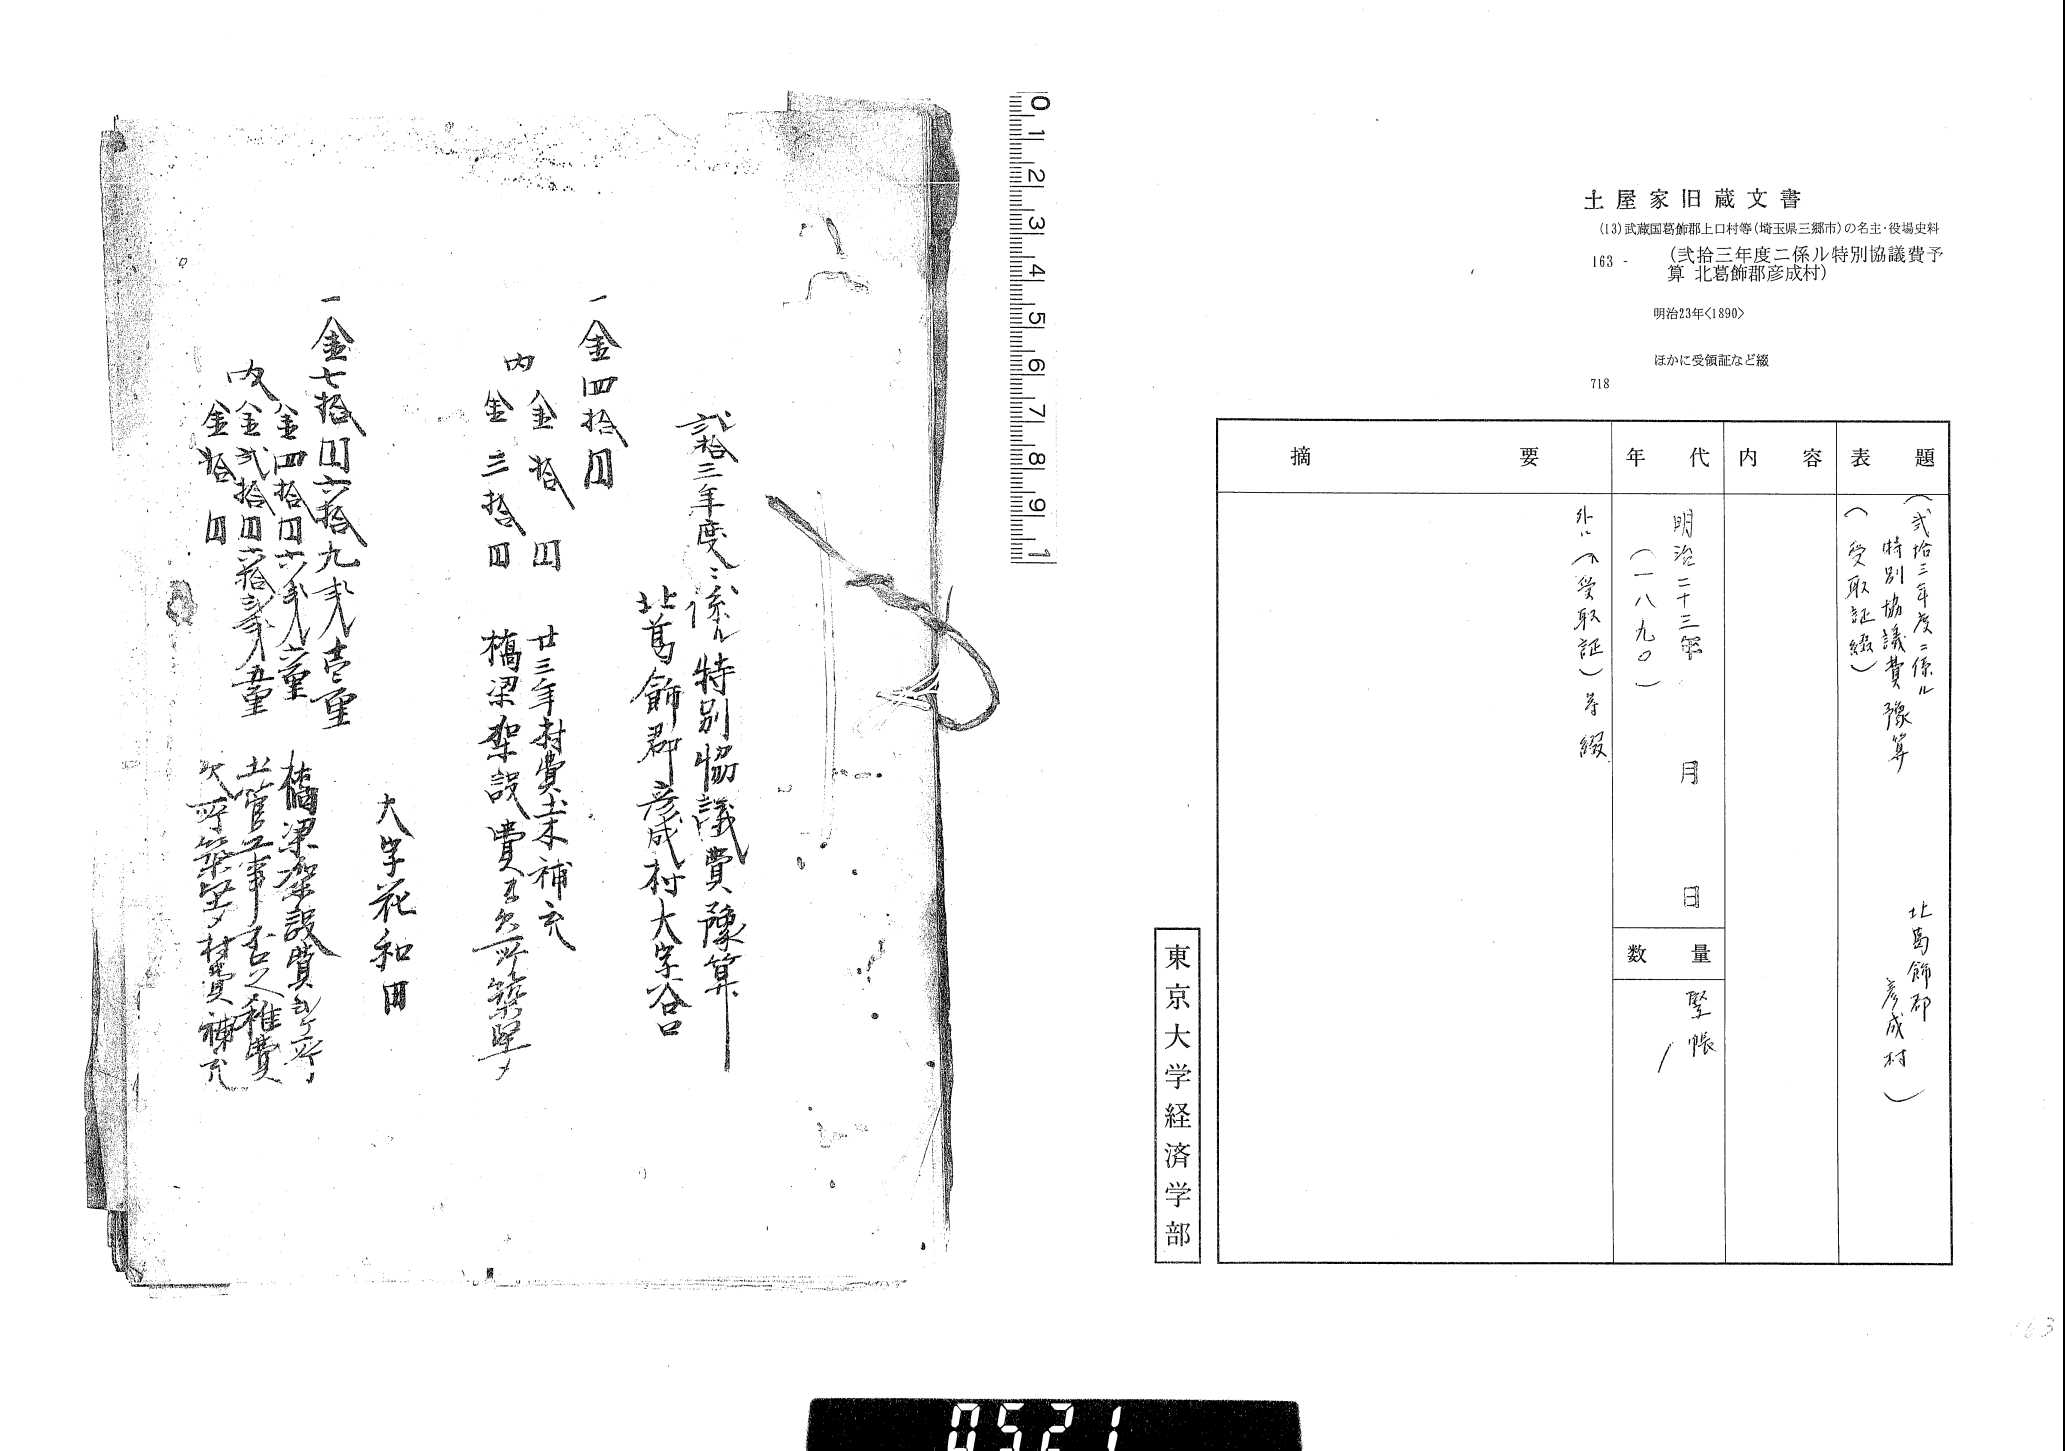 土屋家旧蔵文書
(13)武蔵国葛飾郡上口村等(埼玉県三郷市)の名主・役場史料
163 - (弐拾三年度ニ係ル特別協議費予
算 北葛飾郡彦成村)
明治23年<1890>
ほかに受領証など綴
718
表題
内容
年代
摘要
(弐拾三年度ニ係ル
特別協議費豫算
北葛飾郡
彦成村)
(受取証綴)
明治二十三年 月 日
(一八九〇)
数量
竪帳
1
外ニ(受取証)等綴
東京大学経済学部
0 1 2 3 4 5 6 7 8 9 1
弐拾三年度ニ係ル特別協議費豫算
北葛飾郡彦成村大字谷口
一金四拾円
内
金拾円 廿三年村費土木補充
金三拾円 橋梁架設費
大字花和田
一金七拾円六拾九銭八壱厘
内
金四拾円六銭八六厘 橋梁架設費
金弐拾円六拾弐銭八五厘 土管工事
金拾円
0521